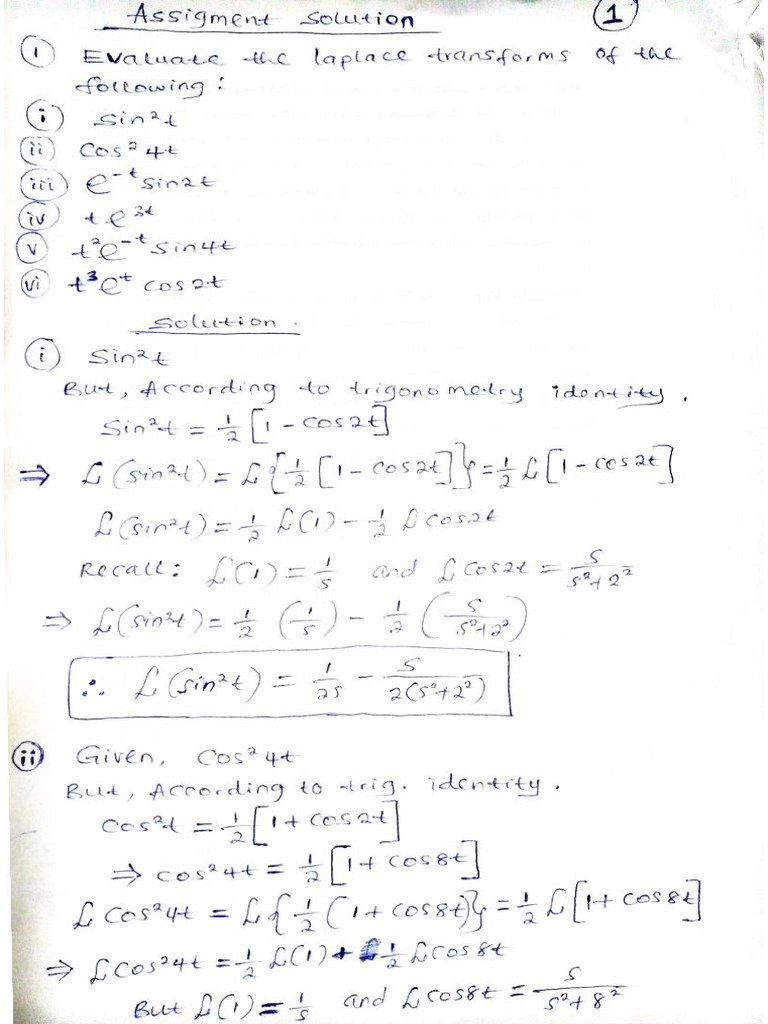 Assigment Solution
1
i Evaluate the laplace transforms of the
following:
i sin²t
ii cos²4t
iii e^-t sin2t
iv te^3t
v t²e^-t sin4t
vi t³e^t cos2t
Solution.
i sin²t
But, According to trigonometry identity.
Sin²t = 1/2 [1 - cos2t]
⇒ ℒ(sin²t) = ℒ{1/2 [1 - cos2t]} = 1/2 ℒ[1 - cos2t]
ℒ(sin²t) = 1/2 ℒ(1) - 1/2 ℒcos2t
Recall: ℒ(1) = 1/s and ℒcos2t = s/(s²+2²)
⇒ ℒ(sin²t) = 1/2 (1/s) - 1/2 (s/(s²+2²))
∴ ℒ(sin²t) = 1/2s - s/2(s²+2²)
ii Given, cos²4t
But, According to trig. identity.
cos²t = 1/2 [1 + cos2t]
⇒ cos²4t = 1/2 [1 + cos8t]
ℒcos²4t = ℒ{1/2 (1 + cos8t)} = 1/2 ℒ[1 + cos8t]
⇒ ℒcos²4t = 1/2 ℒ(1) + 1/2 ℒcos8t
But ℒ(1) = 1/s and ℒcos8t = s/(s²+8²)